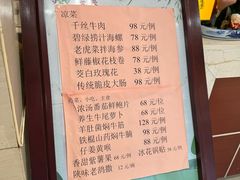 凉菜
千丝牛肉 98元/例
碧绿捞汁海螺 78元/例
老虎菜拌海参 88元/例
鲜藤椒花枝卷 78元/例
茭白玫瑰花 38元/例
传统脆皮大肠 98元/例
热菜、小吃、主食
浓汤番茄鲜鲍片 68元/位
养生牛尾萝卜 68元/位
羊肚菌焖牛筋 128元/例
铁棍山药焖牛腩 98元/例
仔姜黄喉 88元/例
香甜紫薯果 68元/例 冰花锅贴 58元/例
陕味老鸹撒 12元/例